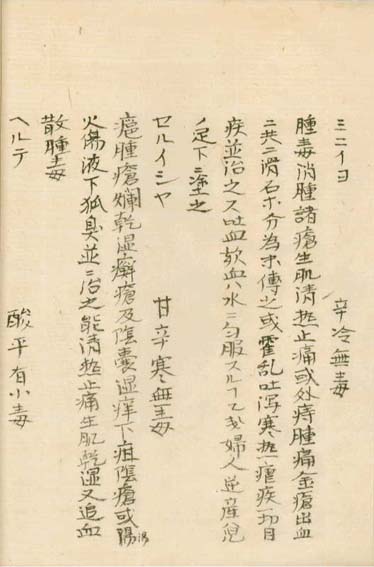 ミニイヨ　辛冷無毒
腫毒消腫諸瘡生肌清熱止痛或外痔腫痛金瘡出血
ニ共ニ滑石ホ分為末傅之或霍乱吐瀉寒熱瘧疾一切目
疾並治之又吐血欬血ハ水ニ匀服スル丁乙匁婦人逆産児
ノ足下ニ塗之
セルイシヤ　甘辛寒無毒
瘡腫瘡爛乾湿癬瘡及陰嚢湿痒下疳陰瘡或湯
火傷液下狐臭並ニ治之能清熱止痛生肌乾湿又追血
散腫毒
ヘルテ　酸平有小毒